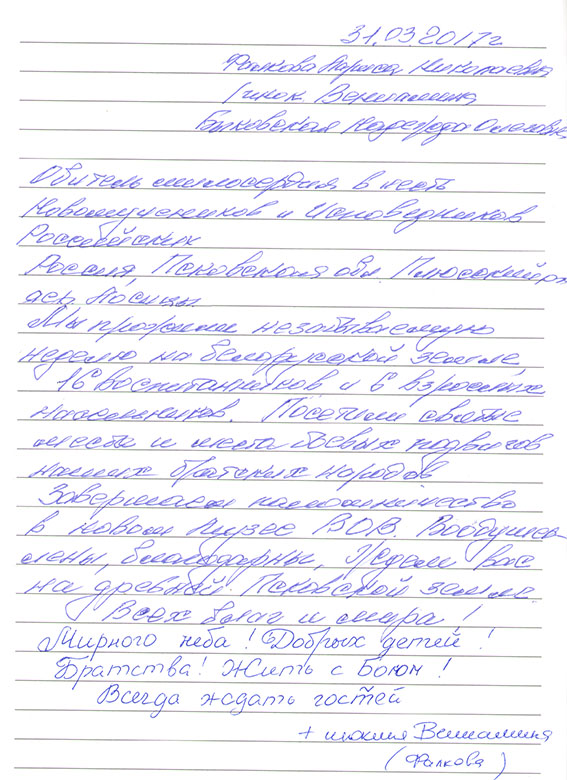 31.03.2017г
Фалкова Лариса Николаевна
Инок. Вениамина
Быковская Надежда Олеговна
Обитель милосердия в честь
Новомучеников и Исповедников
Российских
Россия, Псковская обл. Плюсский р-н
дер. Посицы.
Мы прожили незабываемую
неделю на белорусской земле,
16 воспитанников и 6 взрослых
насельников. Посетили святые
места и места боевых подвигов
наших братских народов
Завершаем паломничество
в новом музее ВОВ. Воодушев
лены, благодарны, Ждем Вас
на древней Псковской земле.
Всех благ и мира!
Мирного неба! Добрых детей!
Братства! Жить с Богом!
Всегда ждать гостей
+ инокиня Вениамина
(Фалкова)